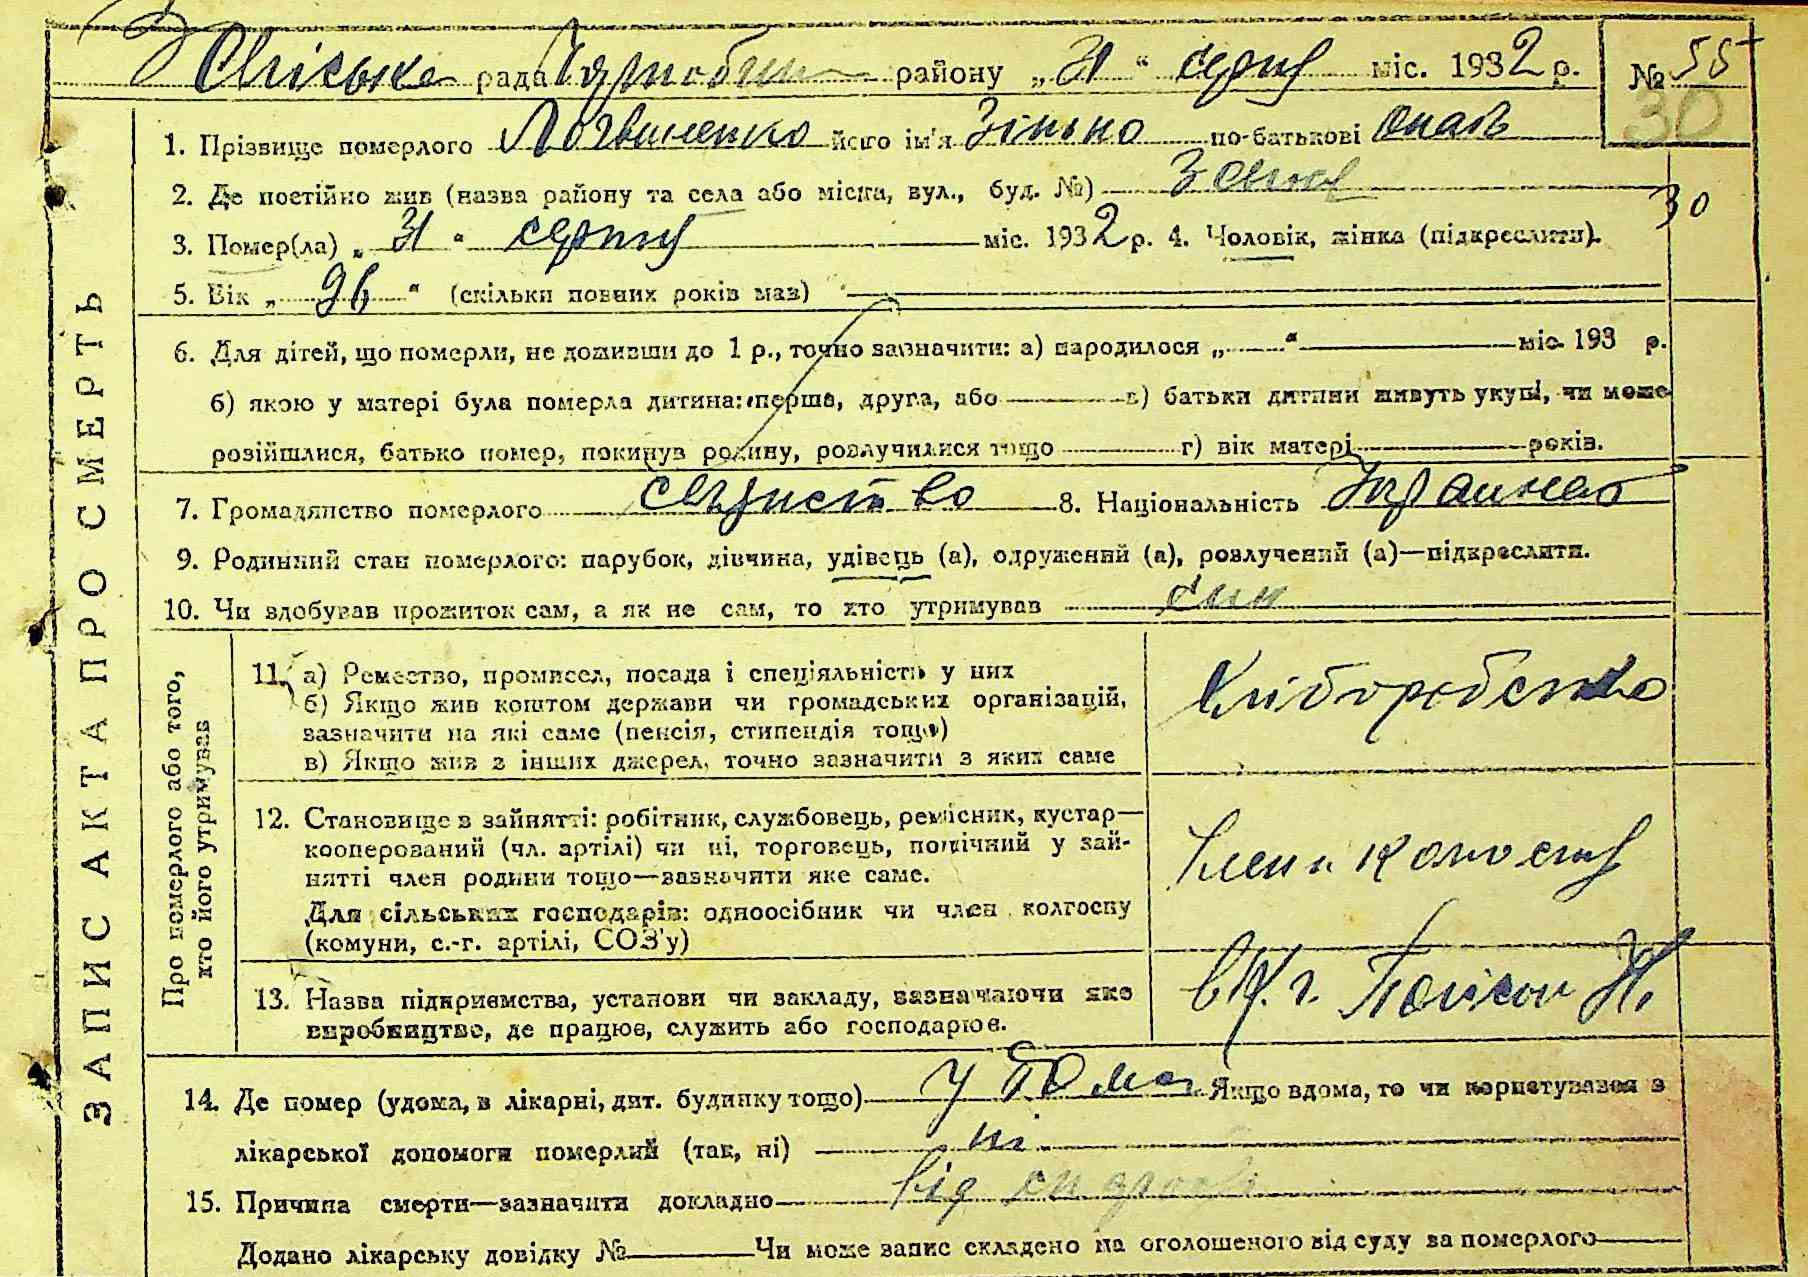 рада району „31“ серпня міс. 1932 р. № 55
30
1. Прізвище померлого Логвиненко його ім'я Зінько по-батькові Опан
2. Де постійно жив (назва району та села або міста, вул., буд. №)
30
3. Помер(ла) „31“ серпня міс. 1932 р. 4. Чоловік, жінка (підкреслити).
5. Вік „96“ (скільки повних років мав)
6. Для дітей, що померли, не доживши до 1 р., точно зазначити: а) народилося „ “ міс. 193 р.
б) якою у матері була померла дитина: перша, друга, або в) батьки дитини живуть укупі, чи може
розійшлися, батько помер, покинув родину, розлучилися тощо г) вік матері років.
7. Громадянство померлого 8. Національність
9. Родинний стан померлого: парубок, дівчина, удівець (а), одружений (а), розлучений (а)—підкреслити.
10. Чи здобував прожиток сам, а як не сам, то хто утримував син
ЗАПИС АКТА ПРО СМЕРТЬ
Про померлого або того,
хто його утримував
11. а) Ремество, промисел, посада і спеціяльність у них
б) Якщо жив коштом держави чи громадських організацій,
зазначити на які саме (пенсія, стипендія тощо)
в) Якщо жив з інших джерел, точно зазначити з яких саме
Хліборобство
12. Становище в зайнятті: робітник, службовець, ремісник, кустар—
кооперований (чл. артілі) чи ні, торговець, помічний у зай-
нятті член родини тощо—зазначити яке саме.
Для сільських господарів: одноосібник чи член колгоспу
(комуни, с.-г. артілі, СОЗ'у)
член колгоспу
13. Назва підприємства, установи чи закладу, зазначаючи яке
виробництво, де працює, служить або господарює.
14. Де помер (удома, в лікарні, дит. будинку тощо) у дома Якщо вдома, то чи користувався з
лікарської допомоги померлий (так, ні) ні
15. Причина смерти—зазначити докладно від
Додано лікарську довідку № Чи може запис складено на оголошеного від суду за померлого